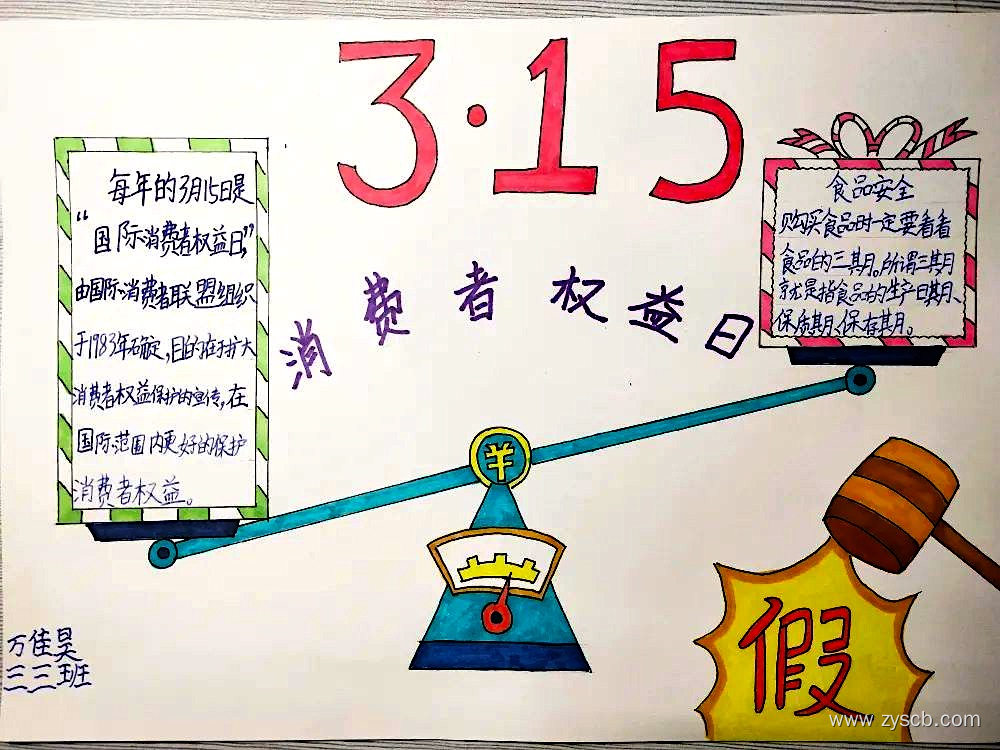 3·15
消费者权益日
每年的3月15日是
“国际消费者权益日”,
由国际消费者联盟组织
于1983年确定,目的在于扩大
消费者权益保护的宣传,在
国际范围内更好的保护
消费者权益。
食品安全
购买食品时一定要看看
食品的三期。所谓三期
就是指食品的生产日期、
保质期、保存期。
羊
假
万佳昊
三三班
www.zyscb.com